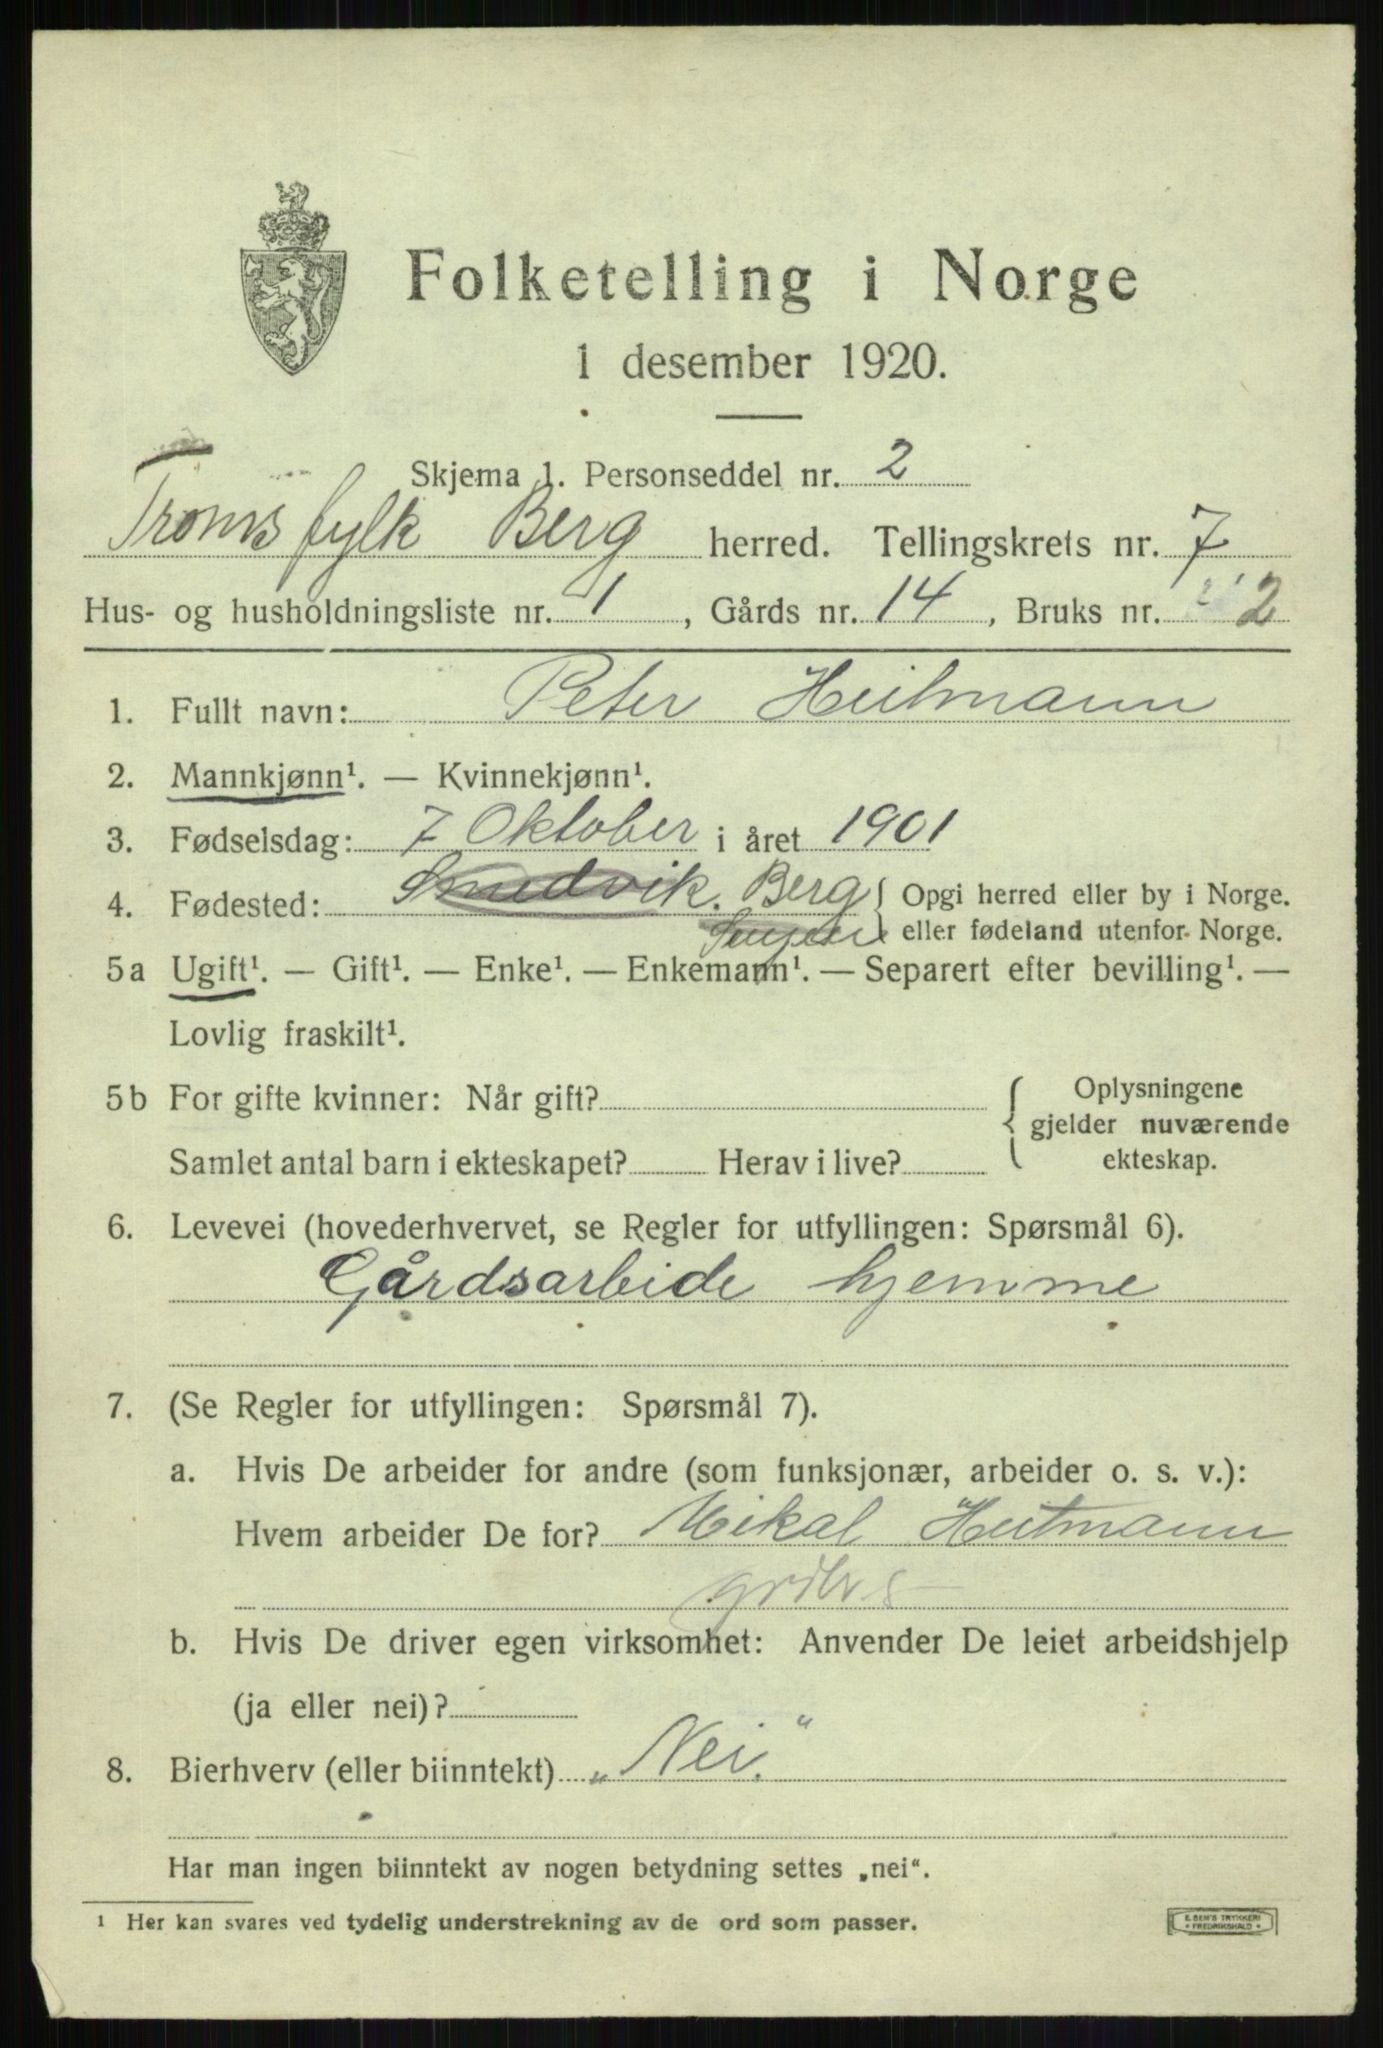 Folketelling i Norge
1 desember 1920.
Skjema 1. Personseddel nr. 2
Troms fylk Berg herred. Tellingskrets nr. 7
Hus- og husholdningsliste nr. 1, Gårds nr. 14, Bruks nr. 2
1. Fullt navn: Peter Heitmann
2. Mannkjønn¹. — Kvinnekjønn¹.
3. Fødselsdag: 7 Oktober i året 1901
4. Fødested: Smedvik. Berg { Opgi herred eller by i Norge.
Senjen eller fødeland utenfor Norge.
5a Ugift¹. — Gift¹. — Enke¹. — Enkemann¹. — Separert efter bevilling¹. —
Lovlig fraskilt¹.
5b For gifte kvinner: Når gift? { Oplysningene
gjelder nuværende
Samlet antal barn i ekteskapet? Herav i live? ekteskap.
6. Levevei (hovederhvervet, se Regler for utfyllingen: Spørsmål 6).
Gårdsarbeide hjemme
7. (Se Regler for utfyllingen: Spørsmål 7).
a. Hvis De arbeider for andre (som funksjonær, arbeider o. s. v.):
Hvem arbeider De for? Mikal Heitmann
b. Hvis De driver egen virksomhet: Anvender De leiet arbeidshjelp
(ja eller nei)?
8. Bierhverv (eller biinntekt) „Nei.“
Har man ingen biinntekt av nogen betydning settes „nei“.
¹ Her kan svares ved tydelig understrekning av de ord som passer.
E. SEM'S TRYKKERI
• FREDRIKSHALD •